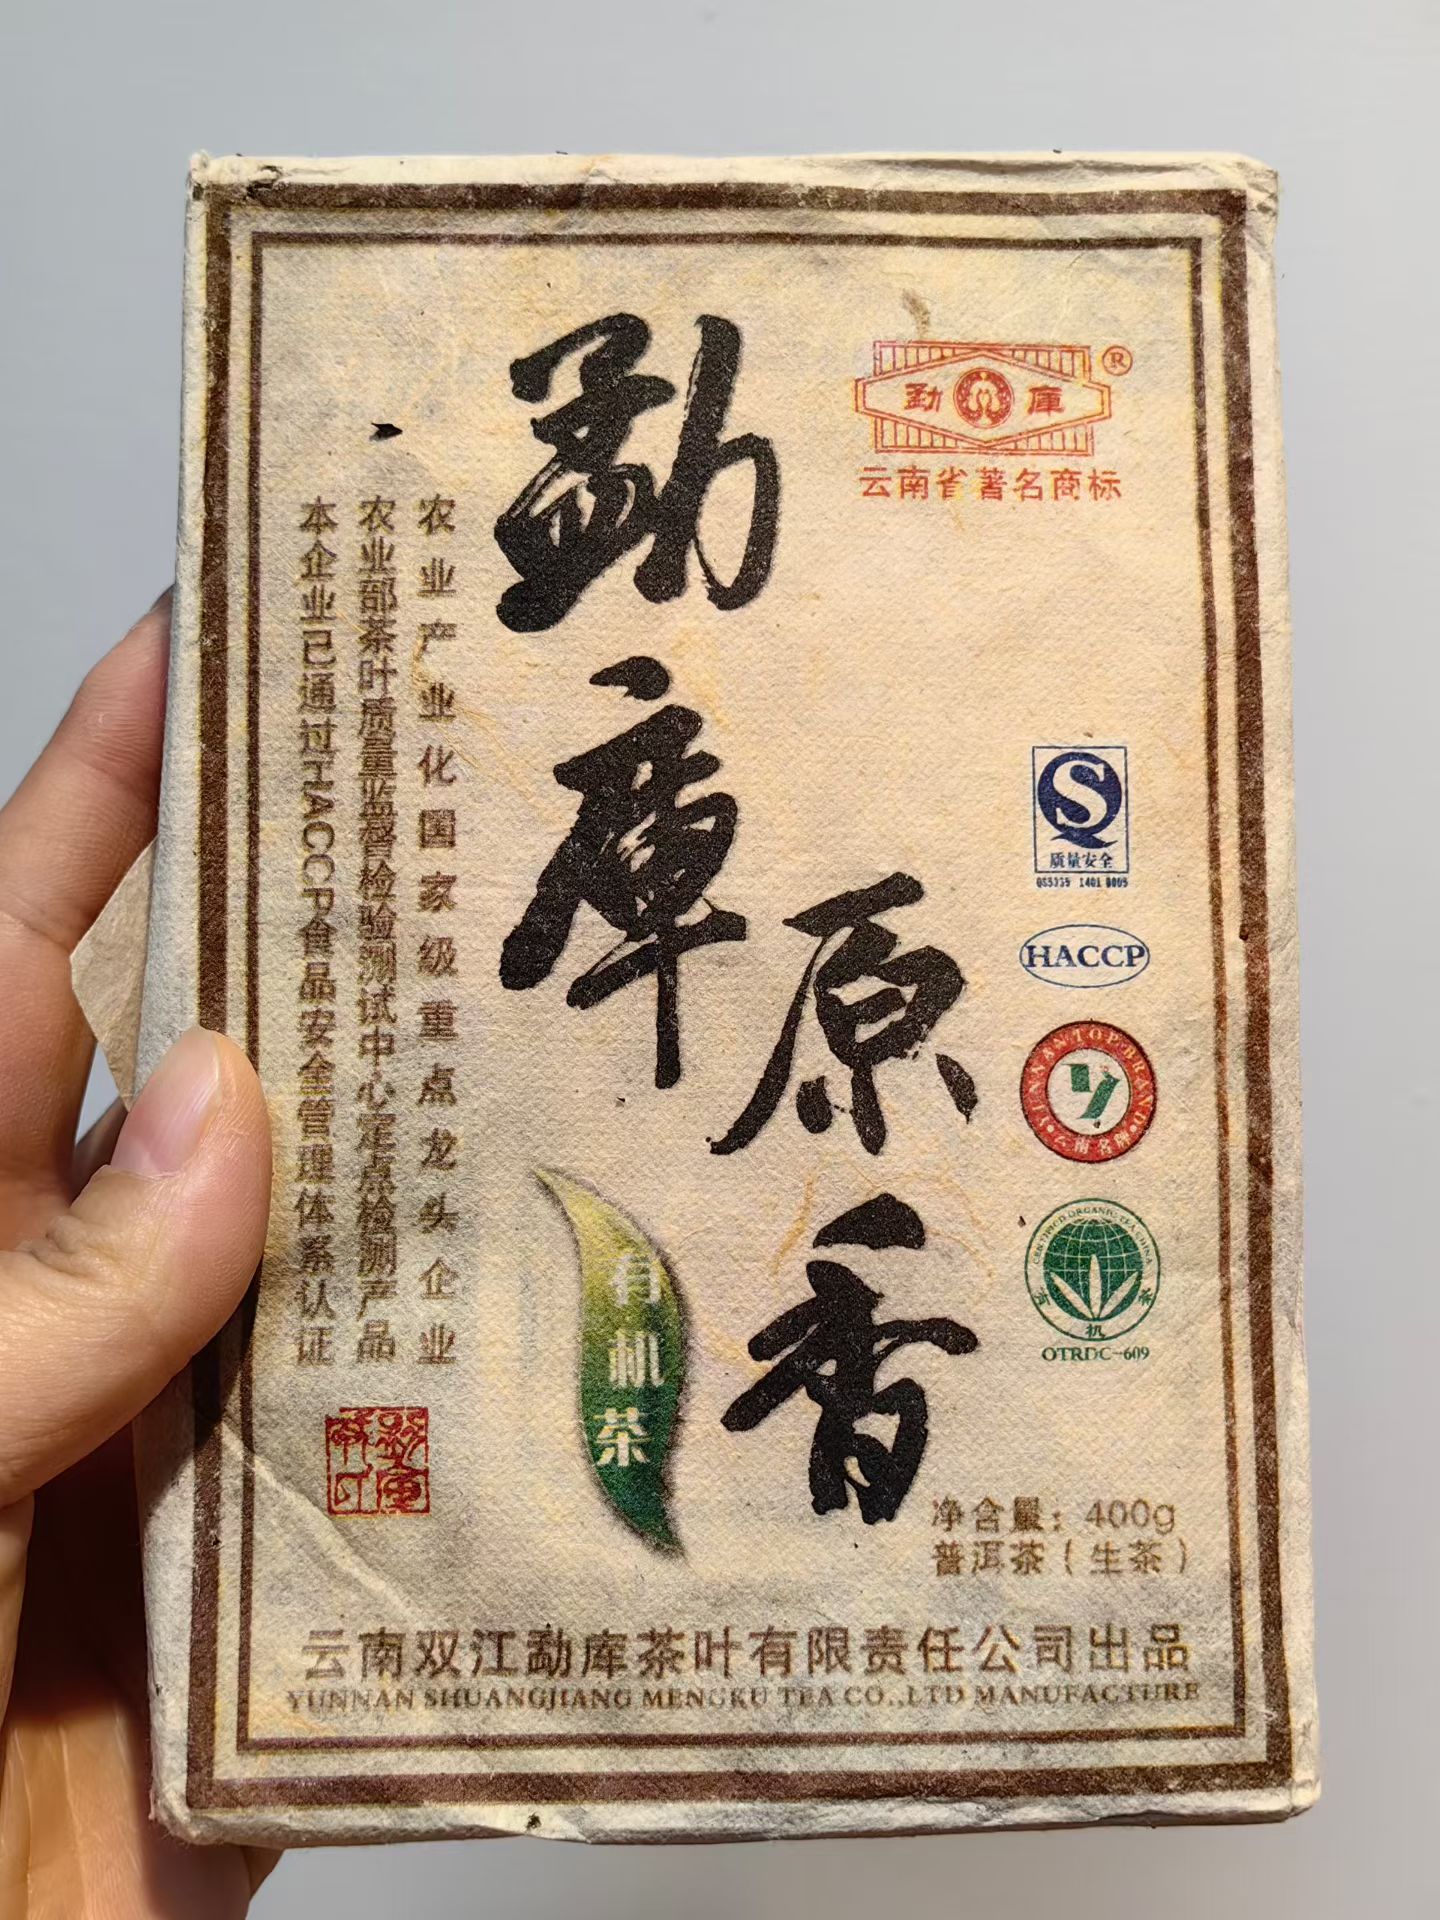 勐库
原香
勐 库 ®
云南省著名商标
农业产业化国家级重点龙头企业
农业部茶叶质量监督检验测试中心定点检测产品
本企业已通过HACCP食品安全管理体系认证
质量安全
QS5335 1401 0005
HACCP
YUNNAN TOP BRAND
云南名牌
CERTIFIED ORGANIC TEA CHINA
有机茶
OTRDC-609
有机茶
净含量：400g
普洱茶（生茶）
云南双江勐库茶叶有限责任公司出品
YUNNAN SHUANGJIANG MENGKU TEA CO.,LTD MANUFACTURE